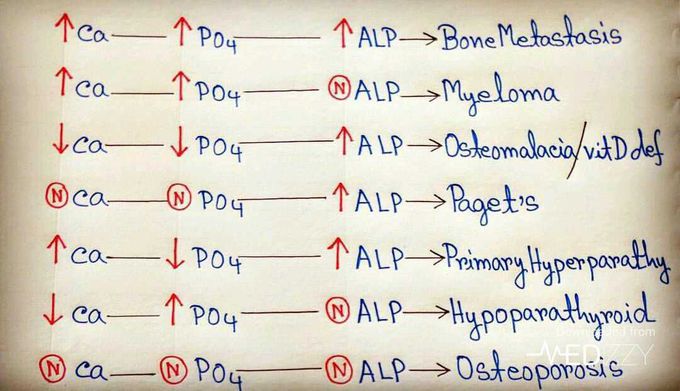 ↑Ca — ↑PO4 — ↑ALP → Bone Metastasis
↑Ca — ↑PO4 — ⓃALP → Myeloma
↓Ca — ↓PO4 — ↑ALP → Osteomalacia/vitD def
ⓃCa — ⓃPO4 — ↑ALP → Paget's
↑Ca — ↓PO4 — ↑ALP → Primary Hyperparathy
↓Ca — ↑PO4 — ⓃALP → Hypoparathyroid
Downloaded from
MEDizzy
ⓃCa — ⓃPO4 — ⓃALP → Osteoporosis